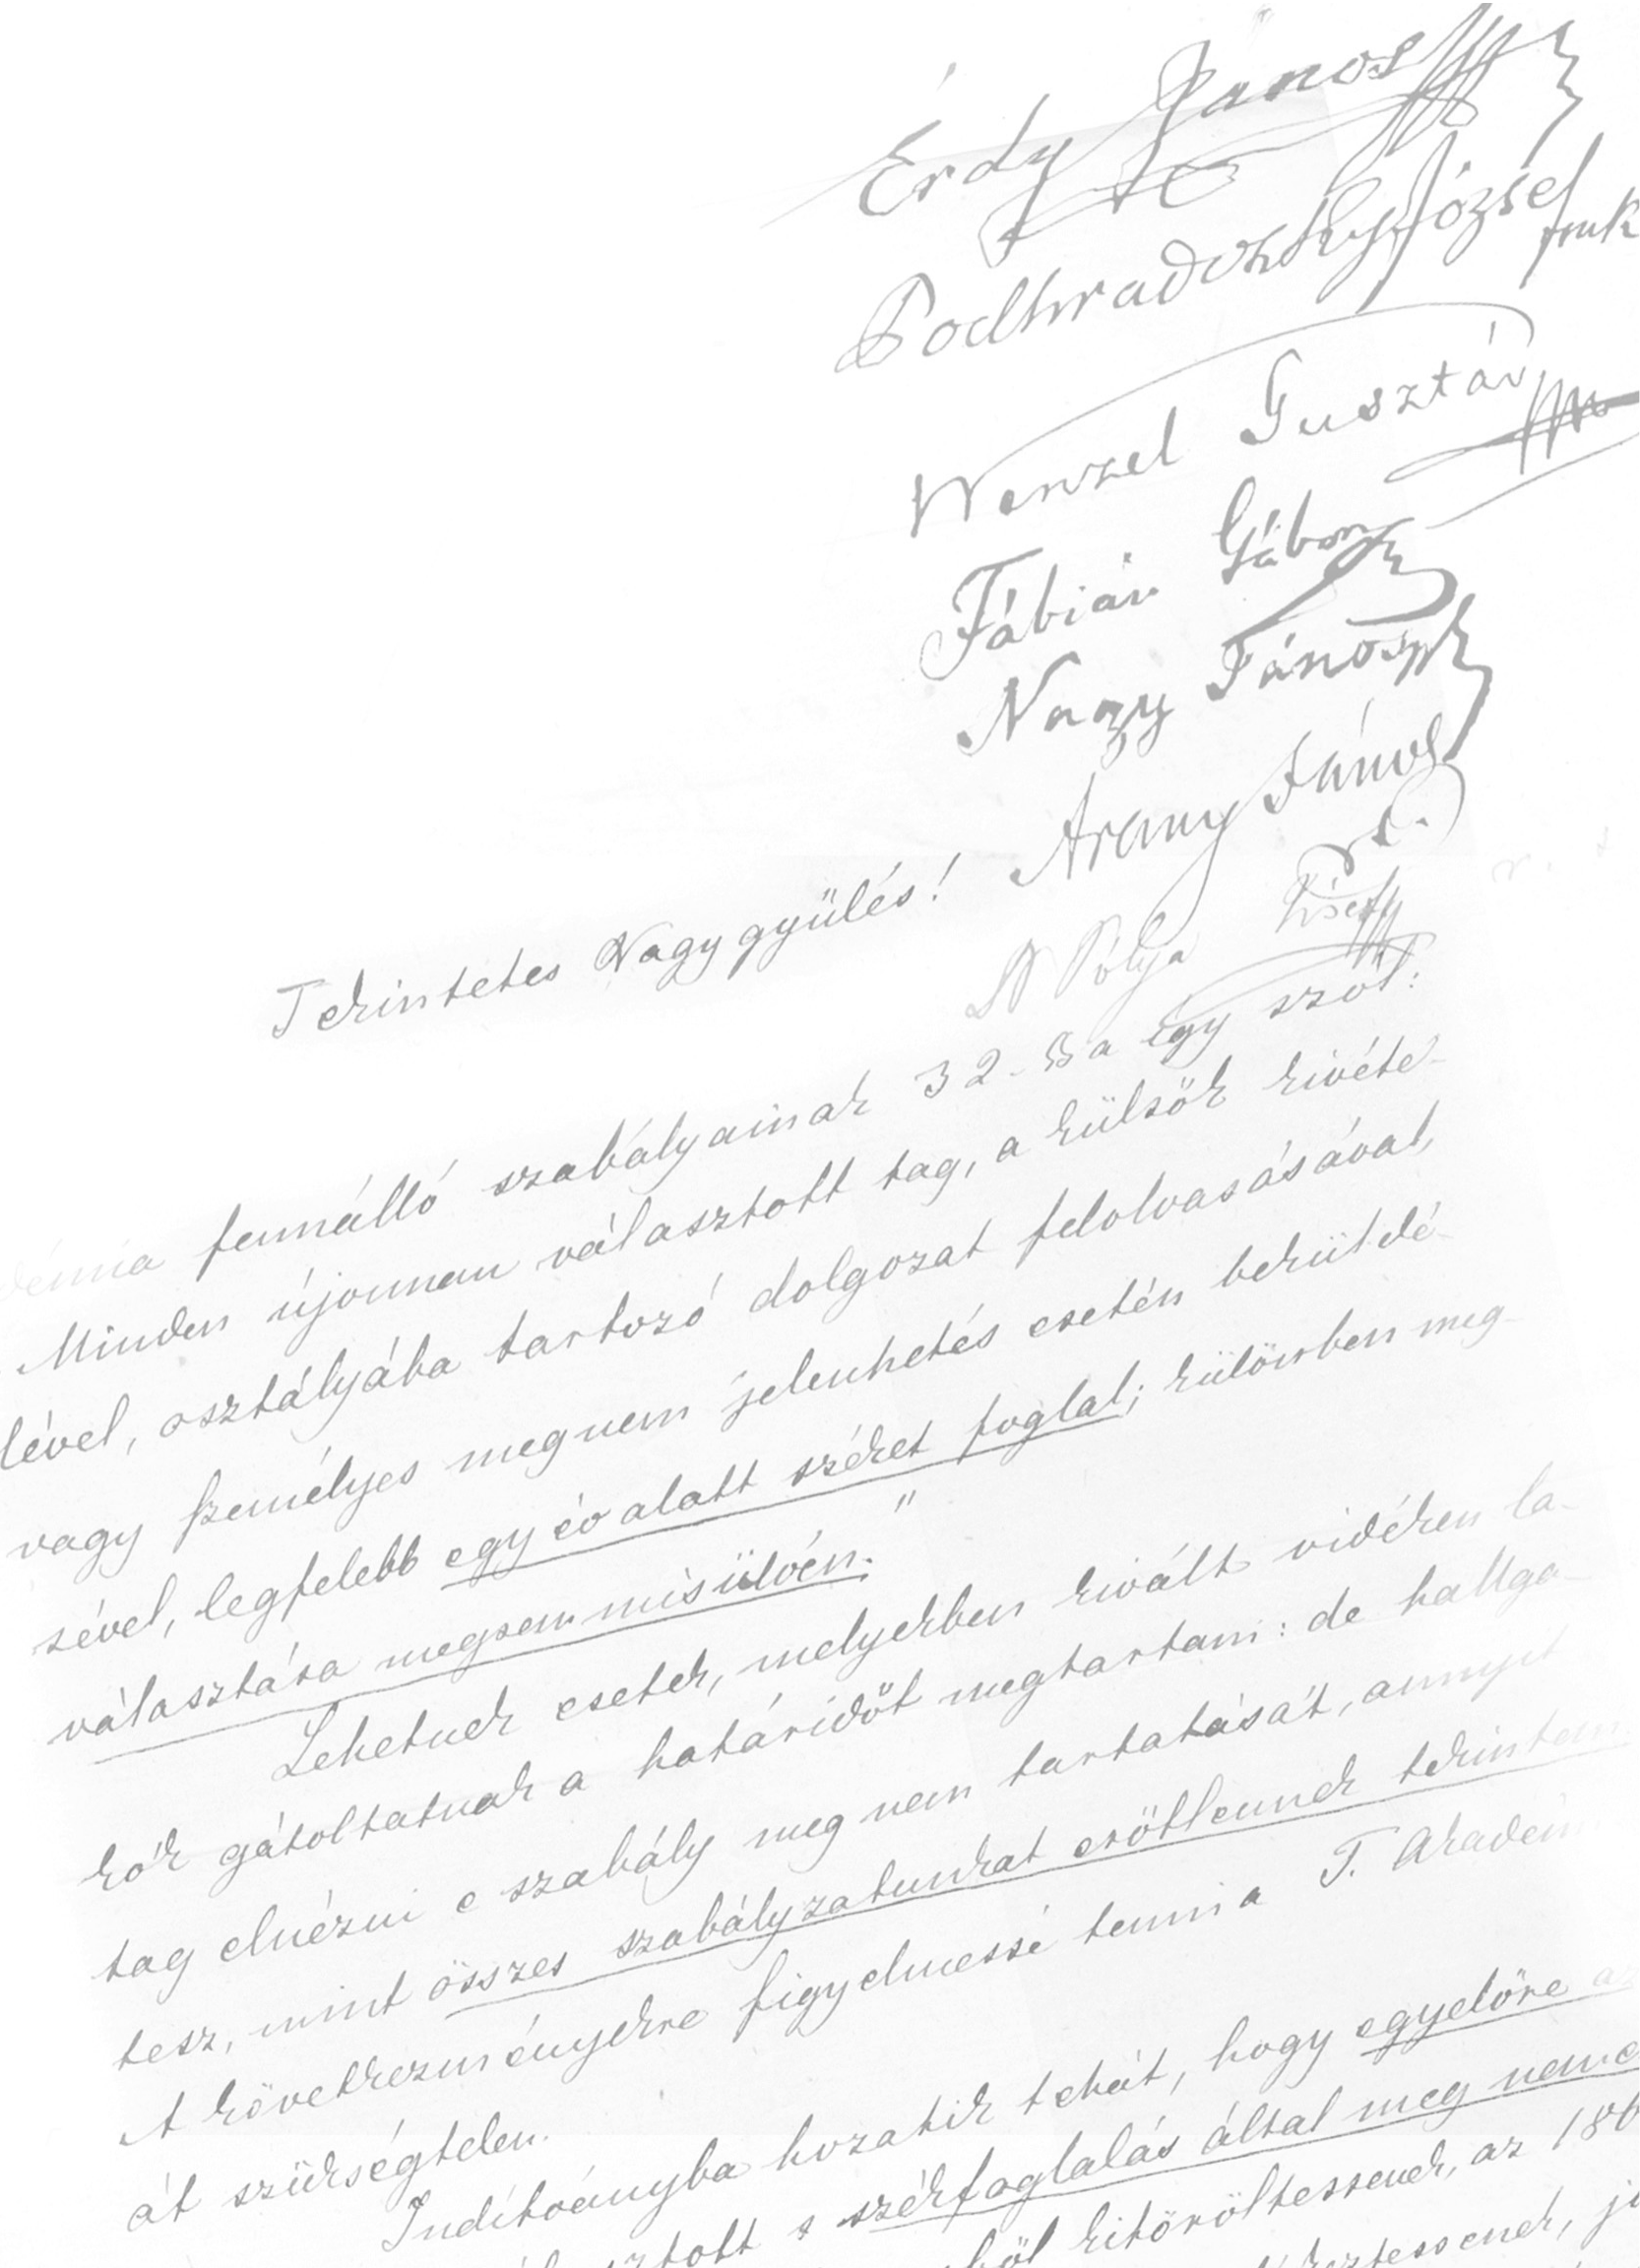 Érdy János
Podhradczky József mk
Wenzel Gusztáv
Fábián Gábor
Nagy János
Arany János
Tekintetes Nagygyülés!
D Pólya József
fennálló szabályainak 32-§a így szól:
Minden újonnan választott tag, a külsők kivéte-
lével, osztályába tartozó dolgozat felolvasásával,
vagy személyes megnem jelenhetés esetén beküldé-
sével, legfelebb egy év alatt széket foglal; különben meg-
választása megsemmisülvén."
Lehetnek esetek, melyekben kivált vidéken la-
kók gátoltatnak a határidőt megtartani: de hallga-
tag elnézni e szabály meg nem tartatását, annyit
tesz, mint összes szabályzatunkat erőtlennek tekinteni
A következményekre figyelmessé tenni a T. Akadémi
át szükségtelen.
Indítványba hozatik tehát, hogy egyelőre az
sztott s székfoglalás által meg neme
ből kitöröltessenek, az 186